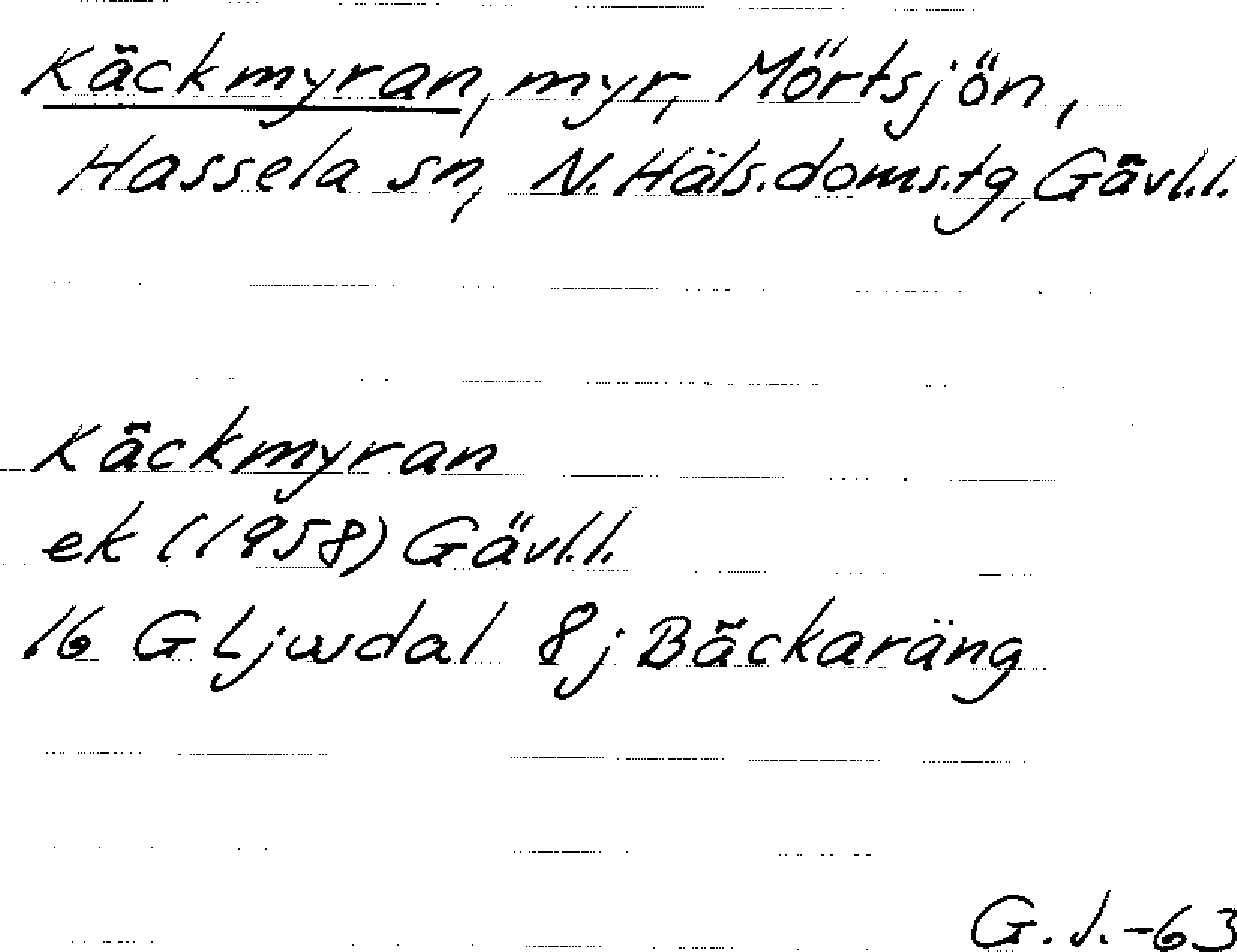 Käckmyran, myr, Mörtsjön,
Hassela sn, N. Häls.doms.tg, Gävl.l.
Käckmyran
ek (1958) Gävl.l.
16 G Ljusdal 8j Bäckaräng
G.J.-63